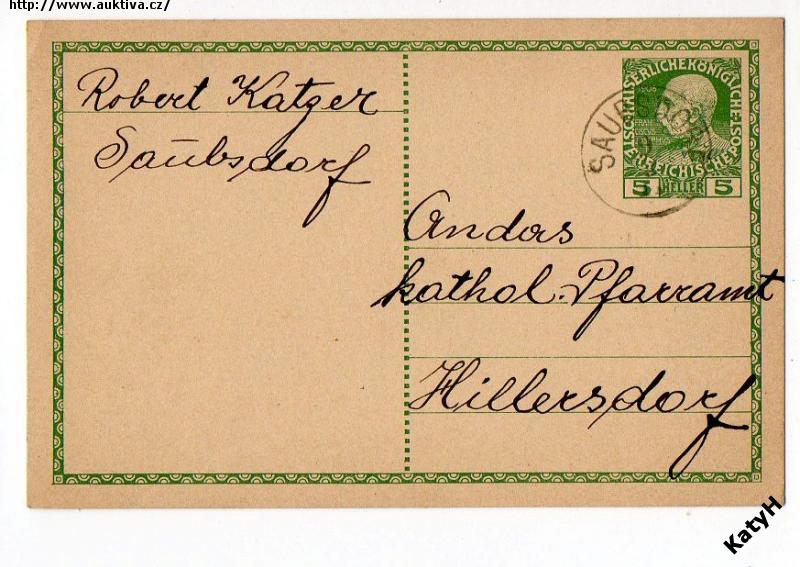 http://www.auktiva.cz/
Robert Katzer
Saubsdorf
KAISERLICHEKÖNIGLICHE
ÖSTERREICHISCHE
5 HELLER 5
SAUBSDORF
An das
kathol. Pfarramt
Hillersdorf
KatyH